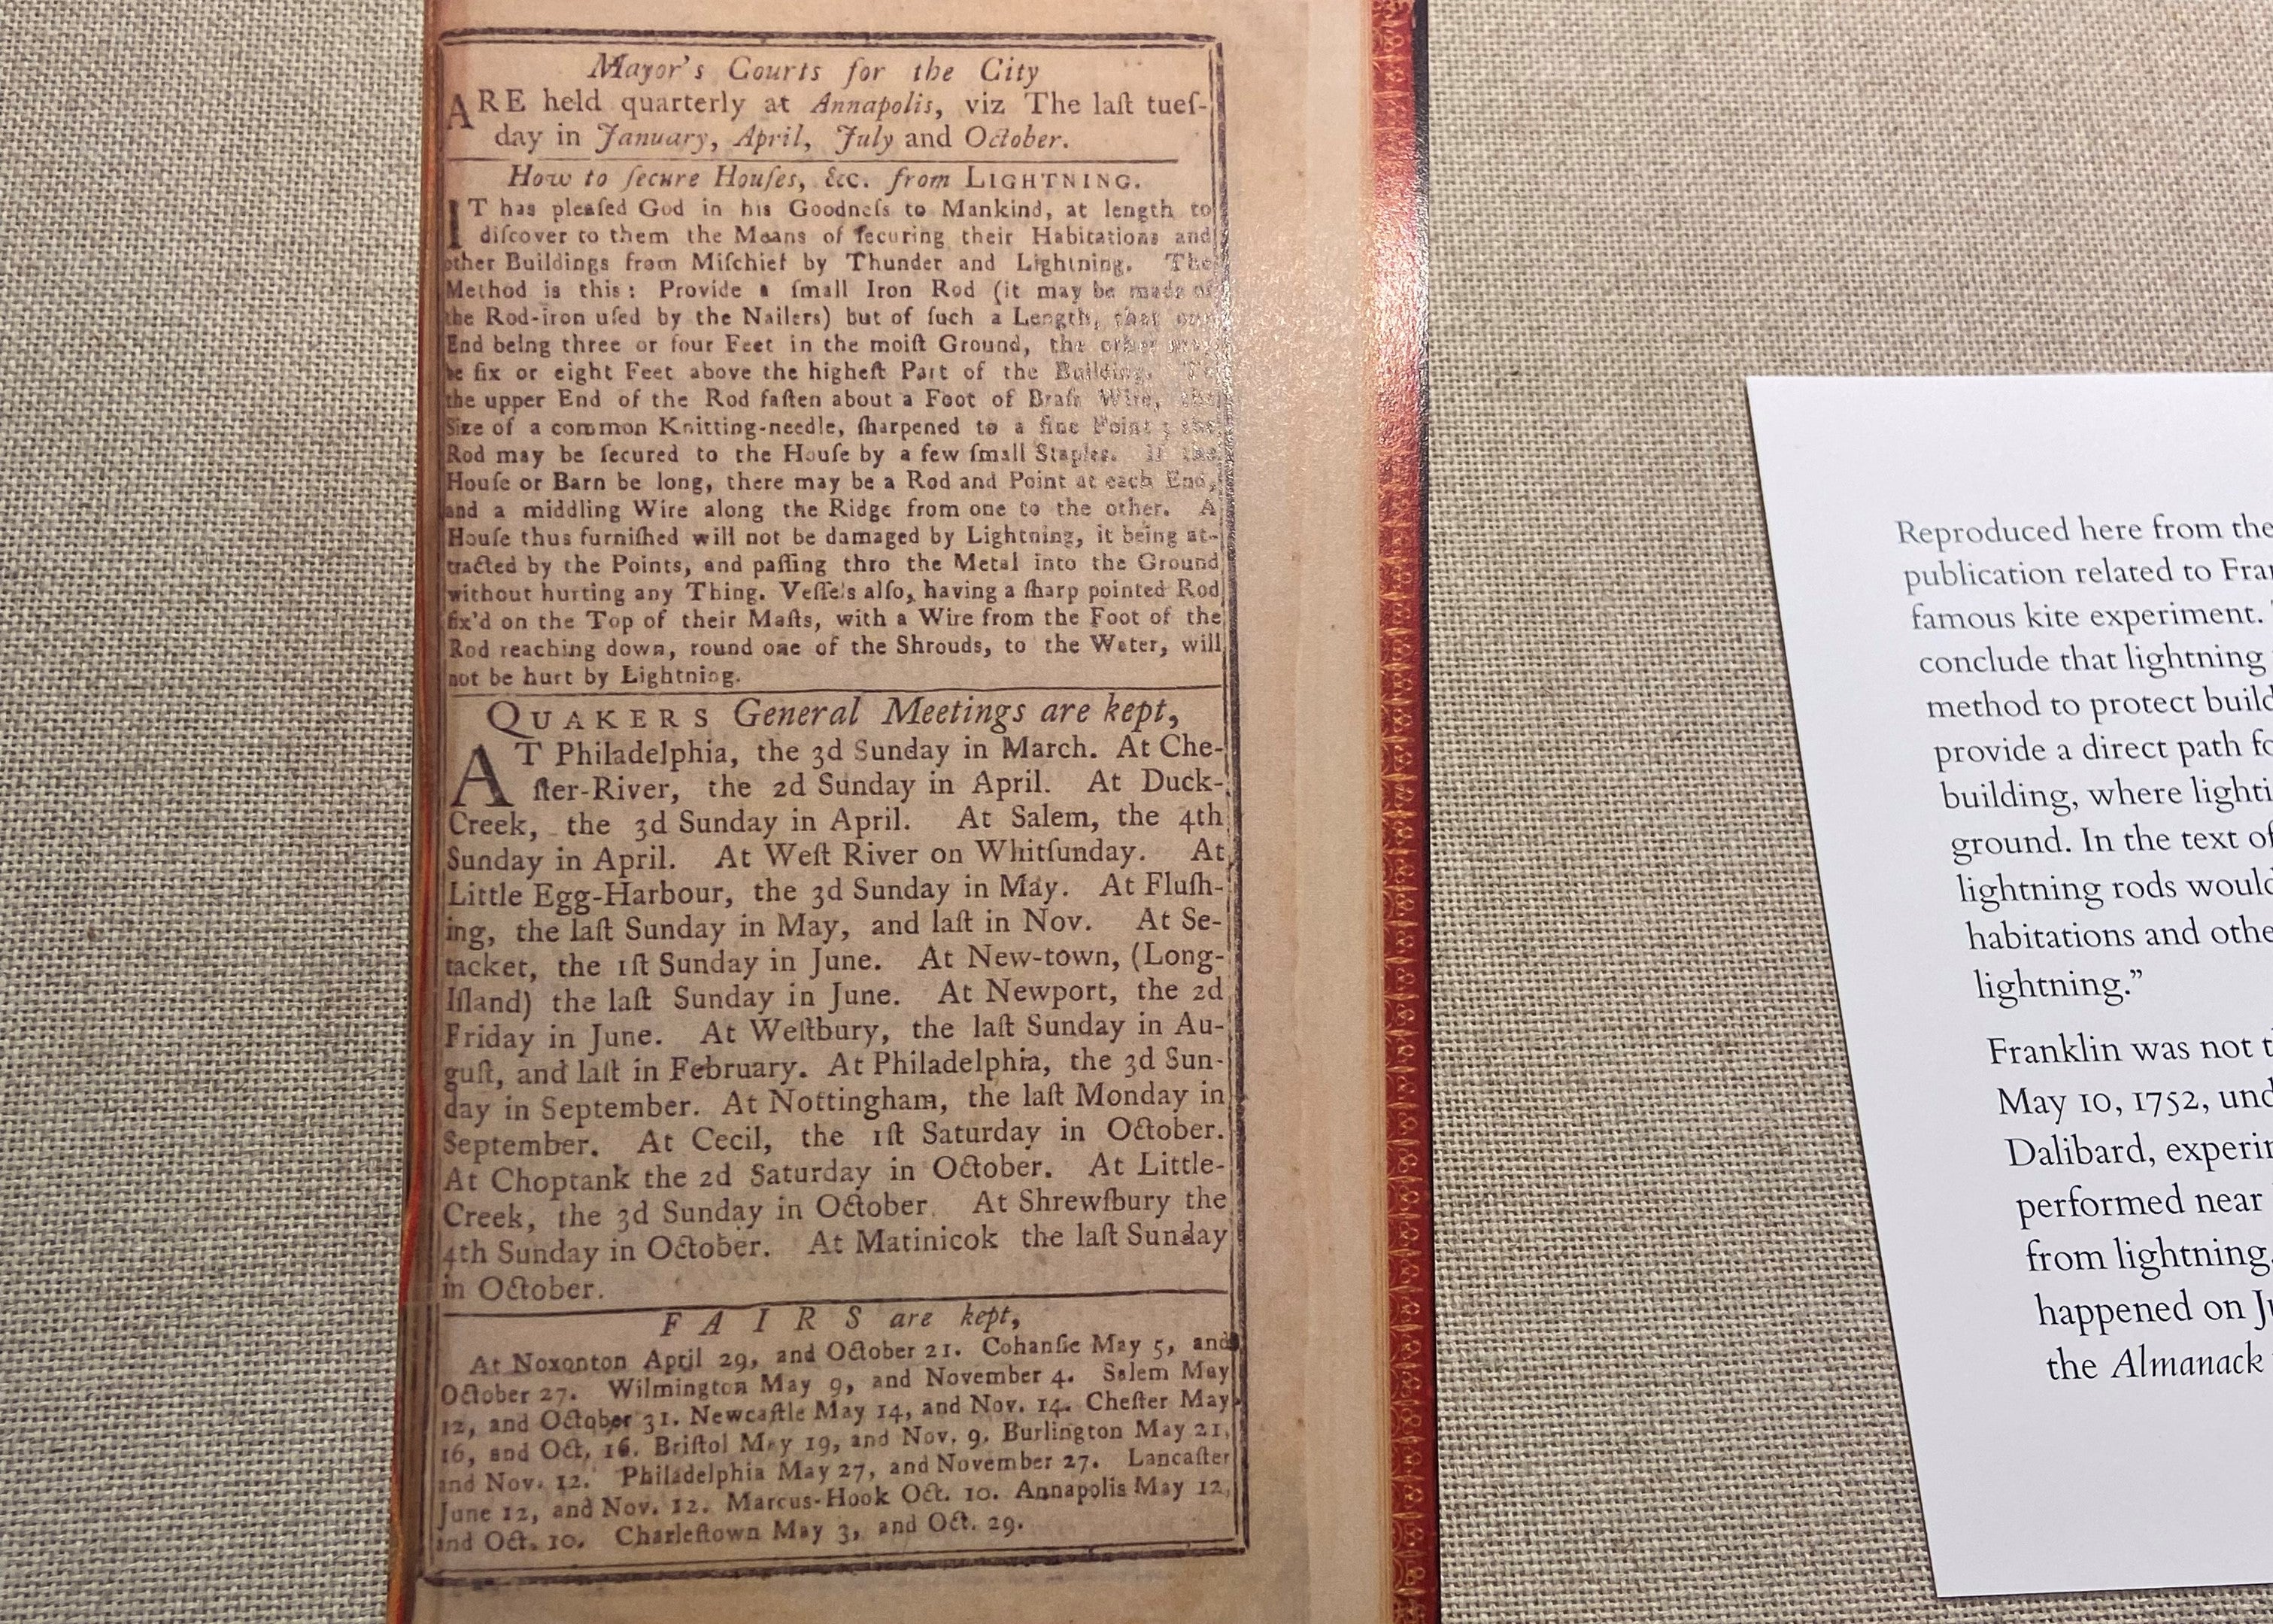 Mayor's Courts for the City
ARE held quarterly at Annapolis, viz The laſt tueſ-
day in January, April, July and October.
How to ſecure Houſes, &c. from LIGHTNING.
IT has pleaſed God in his Goodneſs to Mankind, at length to
diſcover to them the Means of ſecuring their Habitations and
other Buildings from Miſchief by Thunder and Lightning. The
Method is this: Provide a ſmall Iron Rod (it may be made of
the Rod-iron uſed by the Nailers) but of ſuch a Length, that one
End being three or four Feet in the moiſt Ground, the other may
be ſix or eight Feet above the higheſt Part of the Building. To
the upper End of the Rod faſten about a Foot of Braſs Wire, the
Size of a common Knitting-needle, ſharpened to a fine Point; the
Rod may be ſecured to the Houſe by a few ſmall Staples. If the
Houſe or Barn be long, there may be a Rod and Point at each End,
and a middling Wire along the Ridge from one to the other. A
Houſe thus furniſhed will not be damaged by Lightning, it being at-
tracted by the Points, and paſſing thro the Metal into the Ground
without hurting any Thing. Veſſels alſo, having a ſharp pointed Rod
fix'd on the Top of their Maſts, with a Wire from the Foot of the
Rod reaching down, round one of the Shrouds, to the Water, will
not be hurt by Lightning.
QUAKERS General Meetings are kept,
AT Philadelphia, the 3d Sunday in March. At Che-
ſter-River, the 2d Sunday in April. At Duck-
Creek, the 3d Sunday in April. At Salem, the 4th
Sunday in April. At Weſt River on Whitſunday. At
Little Egg-Harbour, the 3d Sunday in May. At Fluſh-
ing, the laſt Sunday in May, and laſt in Nov. At Se-
tacket, the 1ſt Sunday in June. At New-town, (Long-
Iſland) the laſt Sunday in June. At Newport, the 2d
Friday in June. At Weſtbury, the laſt Sunday in Au-
guſt, and laſt in February. At Philadelphia, the 3d Sun-
day in September. At Nottingham, the laſt Monday in
September. At Cecil, the 1ſt Saturday in October.
At Choptank the 2d Saturday in October. At Little-
Creek, the 3d Sunday in October. At Shrewſbury the
4th Sunday in October. At Matinicok the laſt Sunday
in October.
FAIRS are kept,
At Noxonton April 29, and October 21. Cohanſie May 5, and
October 27. Wilmington May 9, and November 4. Salem May
12, and October 31. Newcaſtle May 14, and Nov. 14. Cheſter May
16, and Oct. 16. Briſtol May 19, and Nov. 9. Burlington May 21,
and Nov. 12. Philadelphia May 27, and November 27. Lancaſter
June 12, and Nov. 12. Marcus-Hook Oct. 10. Annapolis May 12,
and Oct. 10. Charleſtown May 3, and Oct. 29.
Reproduced here from the
publication related to
famous kite experiment.
conclude that lightning
method to protect
provide a direct path
building, where
ground. In the text of
lightning rods would
habitations and
lightning.”
Franklin was not
May 10, 1752,
Dalibard,
performed near
from lightning.
happened on
the Almanack